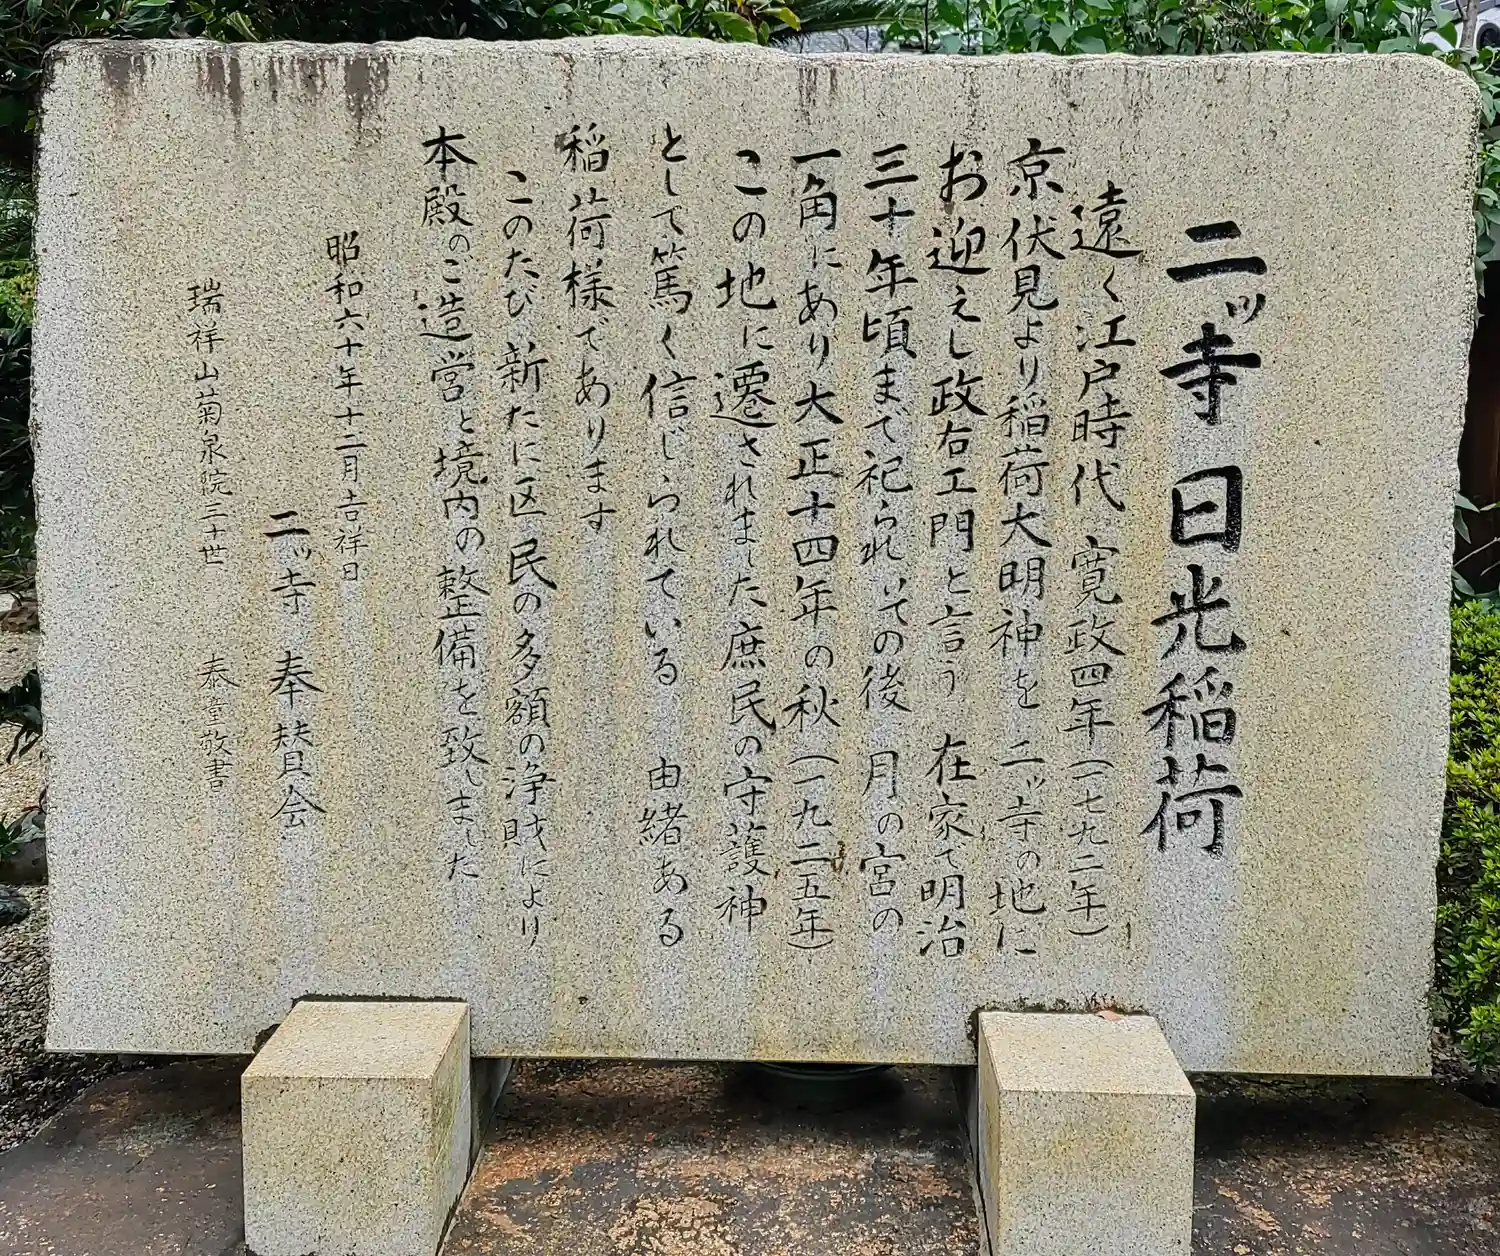 二ッ寺 日光稲荷
遠く江戸時代 寛政四年(一七九二年)
京伏見より稲荷大明神を 二ッ寺の地に
お迎えし政右エ門と言う 在家で明治
三十年頃まで祀られいての後 月の宮の
一角にあり大正十四年の秋(一九二五年)
この地に遷されました庶民の守護神
として篤く信じられている 由緒ある
稲荷様であります
このたび新たに区民の多額の浄財により
本殿のご造営と境内の整備を致しました
昭和六十年十二月吉祥日
二ッ寺 奉賛会
瑞祥山菊泉院三十世 泰童敬書